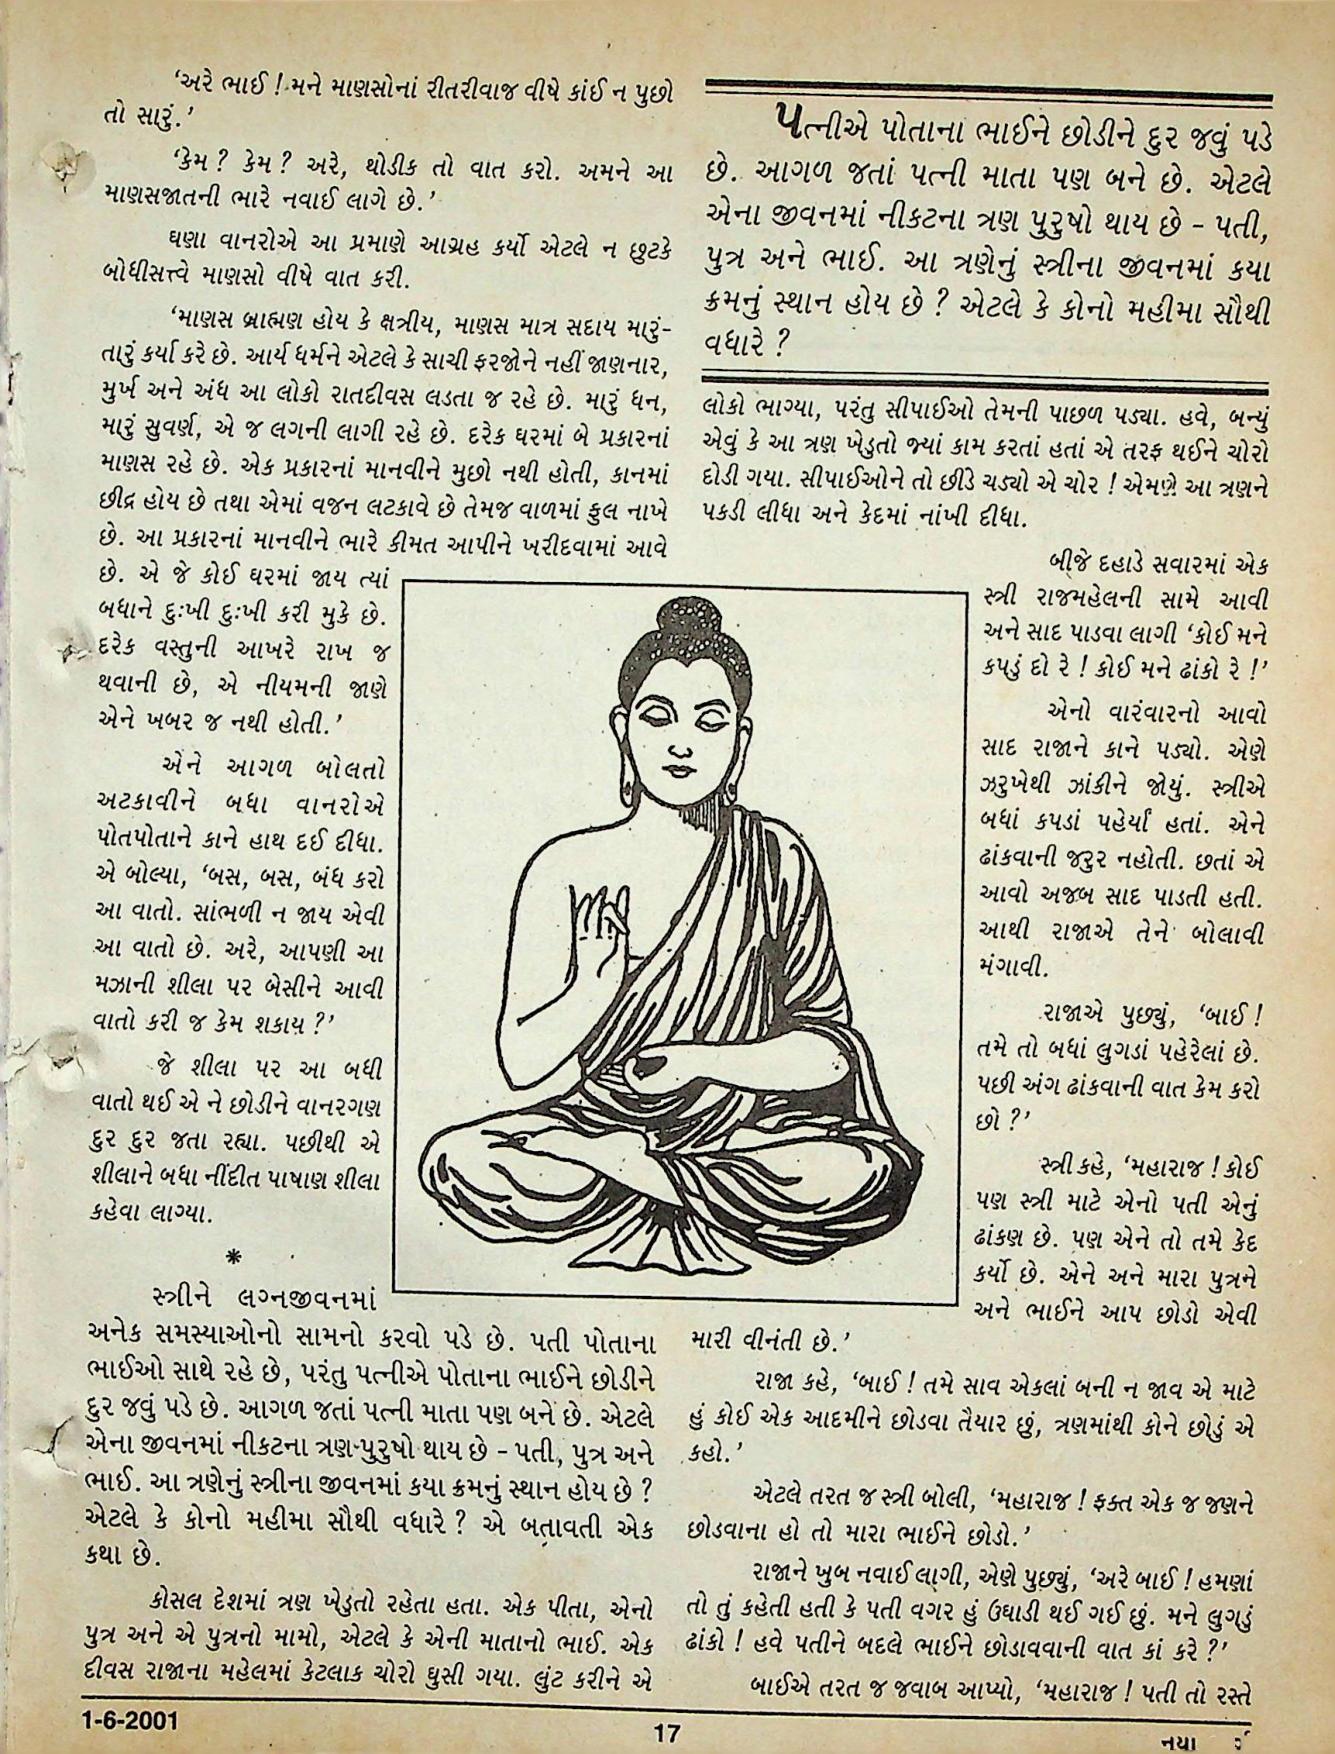 ‘અરે ભાઈ ! મને માણસોનાં રીતરીવાજ વીષે કાંઈ ન પુછો
તો સારું.’
‘કેમ ? કેમ ? અરે, થોડીક તો વાત કરો. અમને આ
માણસજાતની ભારે નવાઈ લાગે છે.’
ઘણા વાનરોએ આ પ્રમાણે આગ્રહ કર્યો એટલે ન છુટકે
બોધીસત્ત્વે માણસો વીષે વાત કરી.
‘માણસ બ્રાહ્મણ હોય કે ક્ષત્રીય, માણસ માત્ર સદાય મારું-
તારું કર્યા કરે છે. આર્ય ધર્મને એટલે કે સાચી ફરજોને નહીં જાણનાર,
મુર્ખ અને અંધ આ લોકો રાતદીવસ લડતા જ રહે છે. મારું ધન,
મારું સુવર્ણ, એ જ લગની લાગી રહે છે. દરેક ઘરમાં બે પ્રકારનાં
માણસ રહે છે. એક પ્રકારનાં માનવીને મુછો નથી હોતી, કાનમાં
છીદ્ર હોય છે તથા એમાં વજન લટકાવે છે તેમજ વાળમાં ફુલ નાખે
છે. આ પ્રકારનાં માનવીને ભારે કીમત આપીને ખરીદવામાં આવે
છે. એ જે કોઈ ઘરમાં જાય ત્યાં
બધાને દુઃખી દુઃખી કરી મુકે છે.
દરેક વસ્તુની આખરે રાખ જ
થવાની છે, એ નીયમની જાણે
એને ખબર જ નથી હોતી.’
એને આગળ બોલતો
અટકાવીને બધા વાનરોએ
પોતપોતાને કાને હાથ દઈ દીધા.
એ બોલ્યા, ‘બસ, બસ, બંધ કરો
આ વાતો. સાંભળી ન જાય એવી
આ વાતો છે. અરે, આપણી આ
મઝાની શીલા પર બેસીને આવી
વાતો કરી જ કેમ શકાય ?’
જે શીલા પર આ બધી
વાતો થઈ એ ને છોડીને વાનરગણ
દુર દુર જતા રહ્યા. પછીથી એ
શીલાને બધા નીંદીત પાષાણ શીલા
કહેવા લાગ્યા.
*
સ્ત્રીને લગ્નજીવનમાં
અનેક સમસ્યાઓનો સામનો કરવો પડે છે. પતી પોતાના
ભાઈઓ સાથે રહે છે, પરંતુ પત્નીએ પોતાના ભાઈને છોડીને
દુર જવું પડે છે. આગળ જતાં પત્ની માતા પણ બને છે. એટલે
એના જીવનમાં નીકટના ત્રણ પુરુષો થાય છે – પતી, પુત્ર અને
ભાઈ. આ ત્રણેનું સ્ત્રીના જીવનમાં કયા ક્રમનું સ્થાન હોય છે ?
એટલે કે કોનો મહીમા સૌથી વધારે ? એ બતાવતી એક
કથા છે.
કોસલ દેશમાં ત્રણ ખેડુતો રહેતા હતા. એક પીતા, એનો
પુત્ર અને એ પુત્રનો મામો, એટલે કે એની માતાનો ભાઈ. એક
દીવસ રાજાના મહેલમાં કેટલાક ચોરો ઘુસી ગયા. લુંટ કરીને એ
પત્નીએ પોતાના ભાઈને છોડીને દુર જવું પડે
છે. આગળ જતાં પત્ની માતા પણ બને છે. એટલે
એના જીવનમાં નીકટના ત્રણ પુરુષો થાય છે – પતી,
પુત્ર અને ભાઈ. આ ત્રણેનું સ્ત્રીના જીવનમાં કયા
ક્રમનું સ્થાન હોય છે ? એટલે કે કોનો મહીમા સૌથી
વધારે ?
લોકો ભાગ્યા, પરંતુ સીપાઈઓ તેમની પાછળ પડ્યા. હવે, બન્યું
એવું કે આ ત્રણ ખેડુતો જ્યાં કામ કરતાં હતાં એ તરફ થઈને ચોરો
દોડી ગયા. સીપાઈઓને તો છીંડે ચડ્યો એ ચોર ! એમણે આ ત્રણને
પકડી લીધા અને કેદમાં નાંખી દીધા.
બીજે દહાડે સવારમાં એક
સ્ત્રી રાજમહેલની સામે આવી
અને સાદ પાડવા લાગી ‘કોઈ મને
કપડું દો રે ! કોઈ મને ઢાંકો રે !’
એનો વારંવારનો આવો
સાદ રાજાને કાને પડ્યો. એણે
ઝરુખેથી ઝાંકીને જોયું. સ્ત્રીએ
બધાં કપડાં પહેર્યાં હતાં. એને
ઢાંકવાની જરુર નહોતી. છતાં એ
આવો અજબ સાદ પાડતી હતી.
આથી રાજાએ તેને બોલાવી
મંગાવી.
રાજાએ પુછ્યું, ‘બાઈ !
તમે તો બધાં લુગડાં પહેરેલાં છે.
પછી અંગ ઢાંકવાની વાત કેમ કરો
છો ?’
સ્ત્રી કહે, ‘મહારાજ ! કોઈ
પણ સ્ત્રી માટે એનો પતી એનું
ઢાંકણ છે. પણ એને તો તમે કેદ
કર્યો છે. એને અને મારા પુત્રને
અને ભાઈને આપ છોડો એવી
મારી વીનંતી છે.’
રાજા કહે, ‘બાઈ ! તમે સાવ એકલાં બની ન જાવ એ માટે
હું કોઈ એક આદમીને છોડવા તૈયાર છું, ત્રણમાંથી કોને છોડું એ
કહો.’
એટલે તરત જ સ્ત્રી બોલી, ‘મહારાજ ! ફક્ત એક જ જણને
છોડવાના હો તો મારા ભાઈને છોડો.’
રાજાને ખુબ નવાઈ લાગી, એણે પુછ્યું, ‘અરે બાઈ ! હમણાં
તો તું કહેતી હતી કે પતી વગર હું ઉઘાડી થઈ ગઈ છું. મને લુગડું
ઢાંકો ! હવે પતીને બદલે ભાઈને છોડાવવાની વાત કાં કરે ?’
બાઈએ તરત જ જવાબ આપ્યો, ‘મહારાજ ! પતી તો રસ્તે
1-6-2001
17
નયા